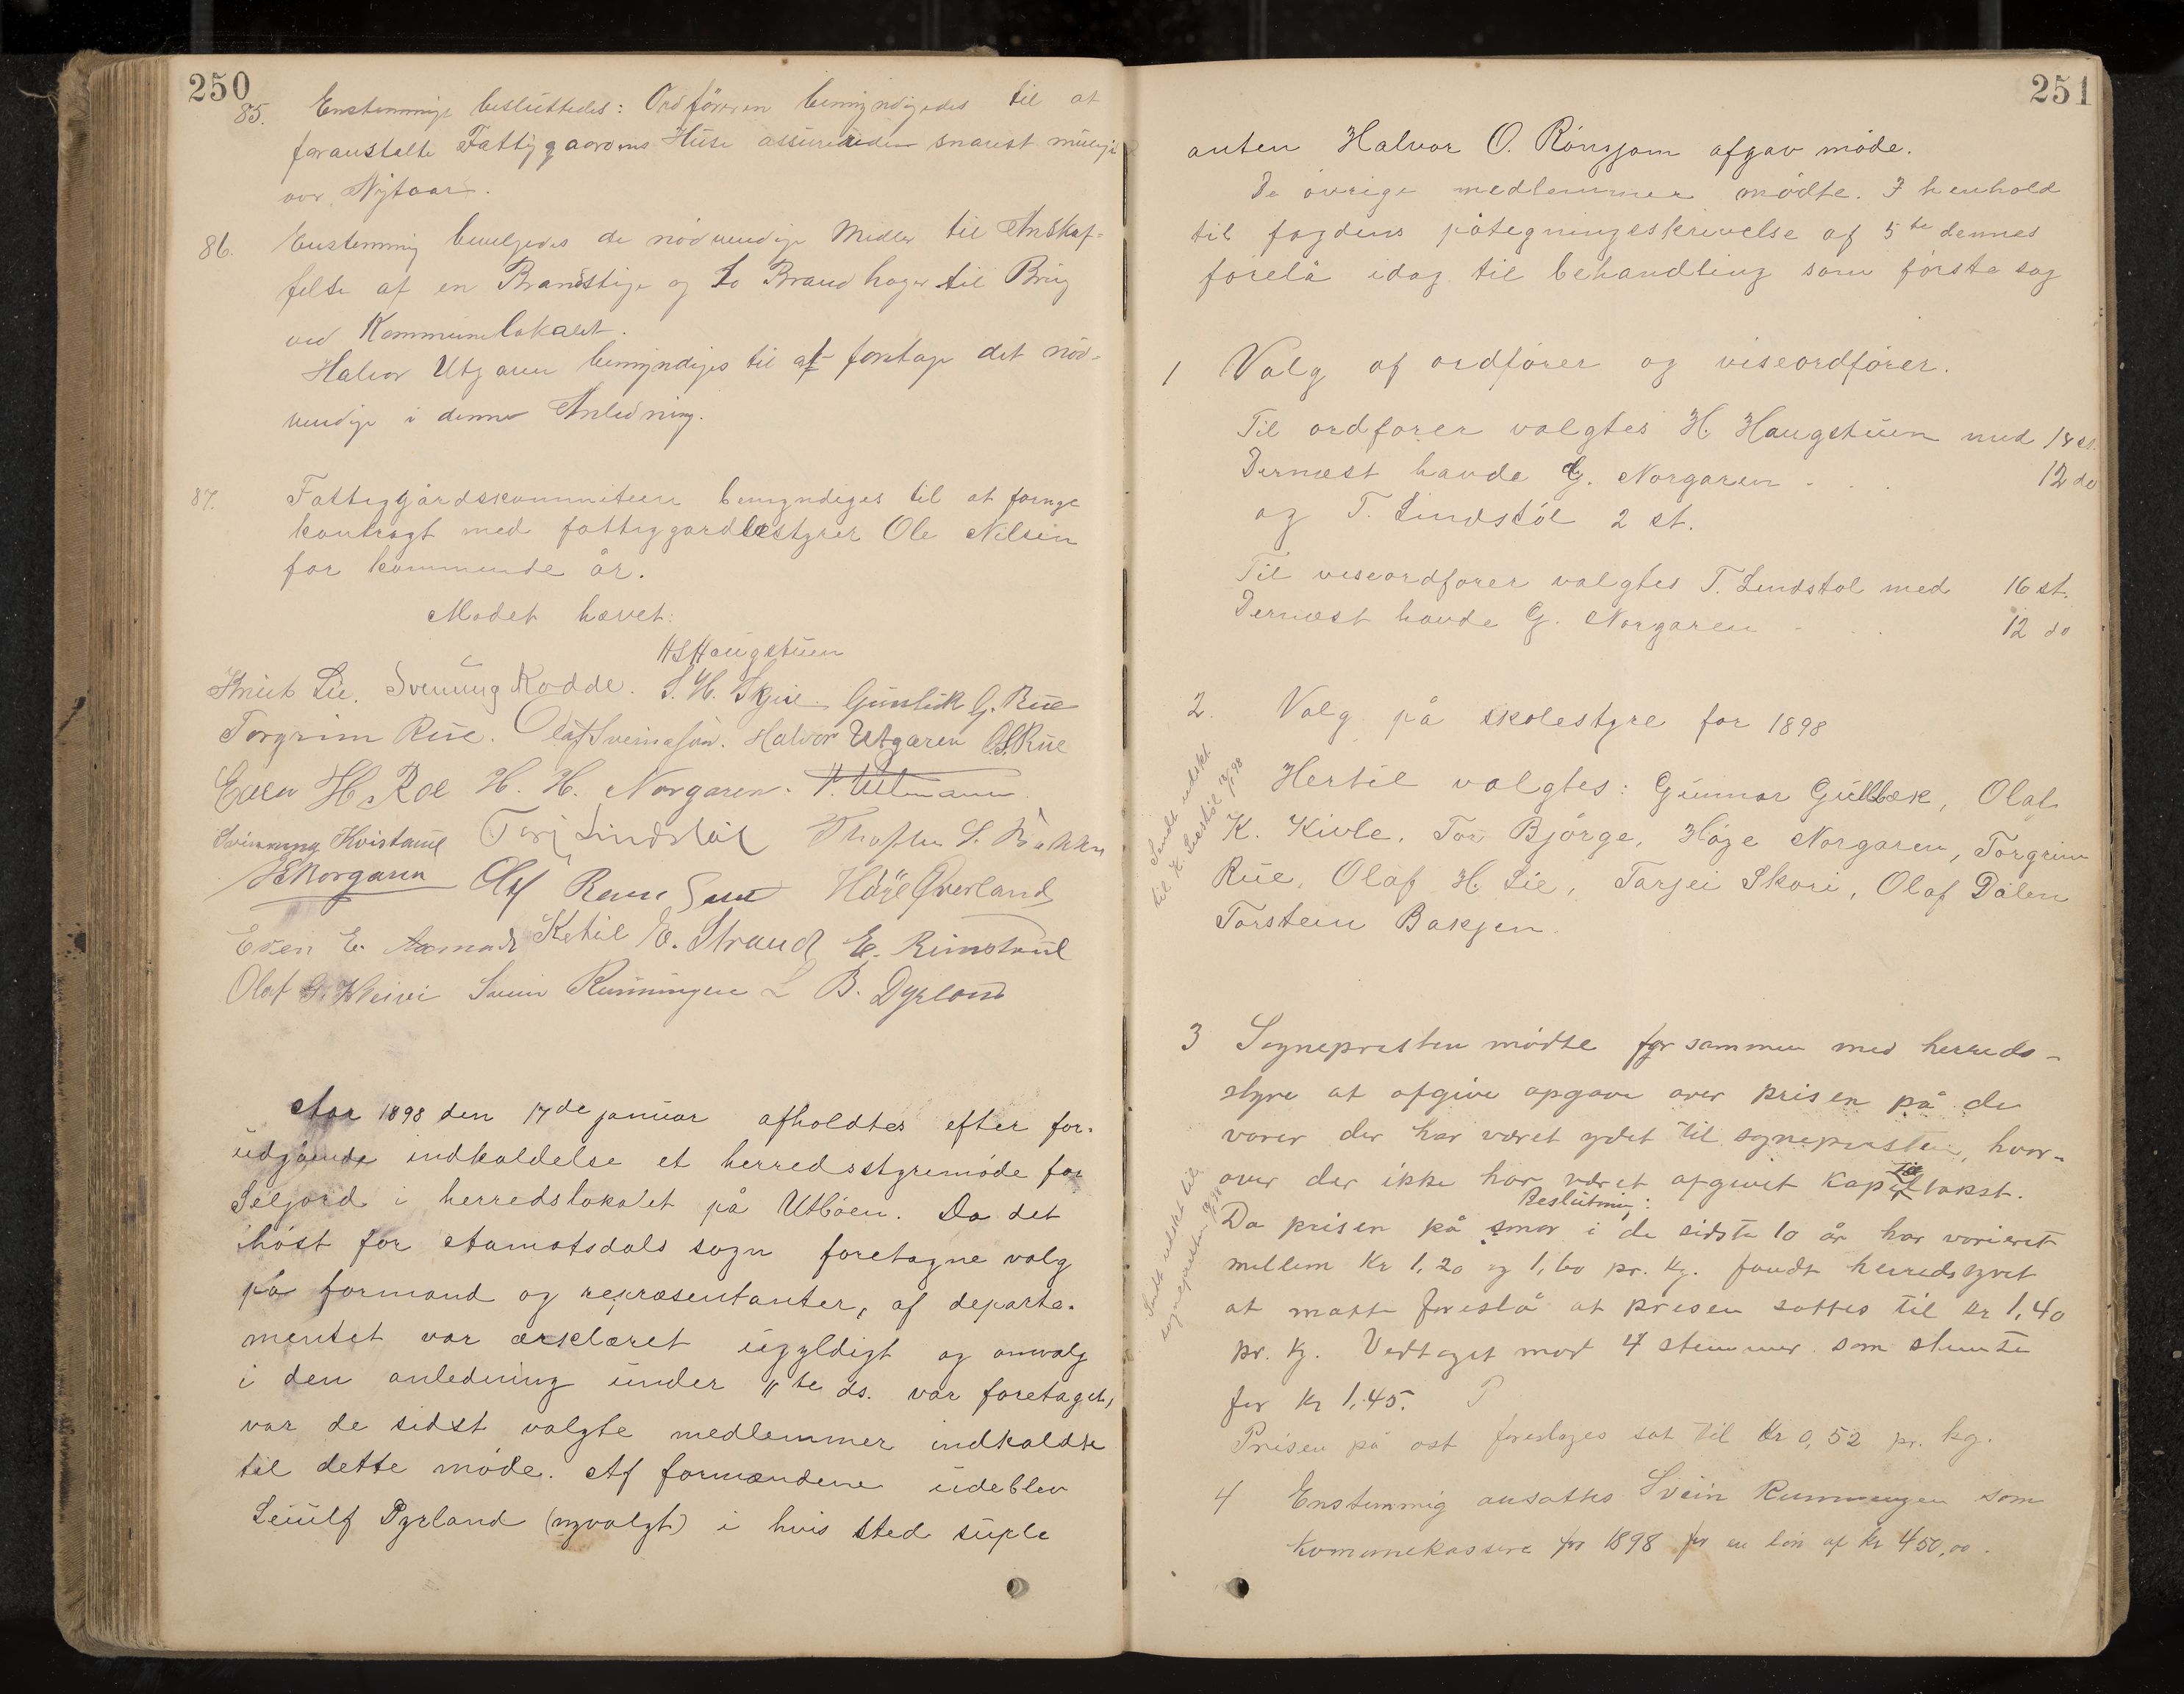 250
85. Enstemmigt besluttedes: Ordföreren bemyndigedes til at
foranstalte Fattiggaardens Huse assureredes snarest muligt
over Nytaar.
86. Enstemmig bevilgedes de nödvendige Midler til Anskaf-
felse af en Brandstige og to Brandhager til Brug
ved Kommunelokalet.
Halvor Utgaren bemyndiges til at foretage det nöd-
vendige i denne Anledning.
87. Fattiggårdskommiteen bemyndiges til at fornye
kontragt med fattiggardbestyrer Ole Nilsen
for kommende år.
Mödet hævet.
HSHaugstuen
Knut Lie. Svenung Rodde. S. H. Skjei Gunleik G. Rue
Torgrim Rue. Olaf Sveinason. Halvor Utgaren O.S.Rue
Even H Roe H. H. Norgaren. P. Utmann.
Svenung Kvistaul Terj Lindstöl
HENorgaren Olaf Höye Överland
Even E. Ketil E. Strand E. Rimstaul
Olaf Svein Runningen L B. Dyrland
Aar 1898 den 17de januar afholdtes efter for-
udgående indkaldelse et herredsstyremöde for
Seljord i herredslokalet på Utböen. Da det
ihöst for Aamotsdals sogn foretagne valg
på formænd og repræsentanter, af departe-
mentet var ærklæret ugyldigt og omvalg
i den anledning under 11te ds. var foretaget,
var de sidst valgte medlemmer indkaldte
til dette möde. Af formændene udeblev
Leiulf Dyrland (nyvalgt) i hvis sted suple
251
anten Halvor O. Rönjom afgav möde.
De övrige medlemmer mödte. I henhold
til fogdens påtegningsskrivelse af 5te dennes
forelå idag til behandling som förste sag
1 Valg af ordförer og viseordförer.
Til ordförer valgtes H. Haugstuen med 18 st.
Dernæst havde G. Norgaren - . . 12 do
og T. Lindstöl 2 st.
Til viseordförer valgtes T. Lindstöl med 16 st.
Dernæst havde G. Norgaren - . 12 do
2. Valg på skolestyre for 1898
Sendt udskr.
til K.
Hertil valgtes: Gunnar Gullbæk, Olaf
K. Kivle, Tor Björge, Höge Norgaren, Torgrim
Rue, Olaf H. Lie, Tarjei Skori, Olaf Dalen
Torstein Bakjen.
3 Sognepresten mödte for sammen med herreds-
styre at afgive opgave over prisen på de
varer der har været ydet til sognepresten, hvor-
over der ikke har været opgivet kapiteltakst.
Beslutning:
Sendt udskr. til
sognepresten
Da prisen på smør i de sidste 10 år har varieret
mellem Kr 1,20 og 1,60 pr. kg. fandt herredsstyret
at måtte foreslå at prisen sattes til kr 1,40
pr. kg. Vedtaget mod 4 stemmer som stemte
for kr 1,45.
Prisen på ost foreslages sat til kr 0,52 pr. kg.
4 Enstemmig ansattes Svein Runningen som
kommunekasserer for 1898 for en lön af kr 450,00.